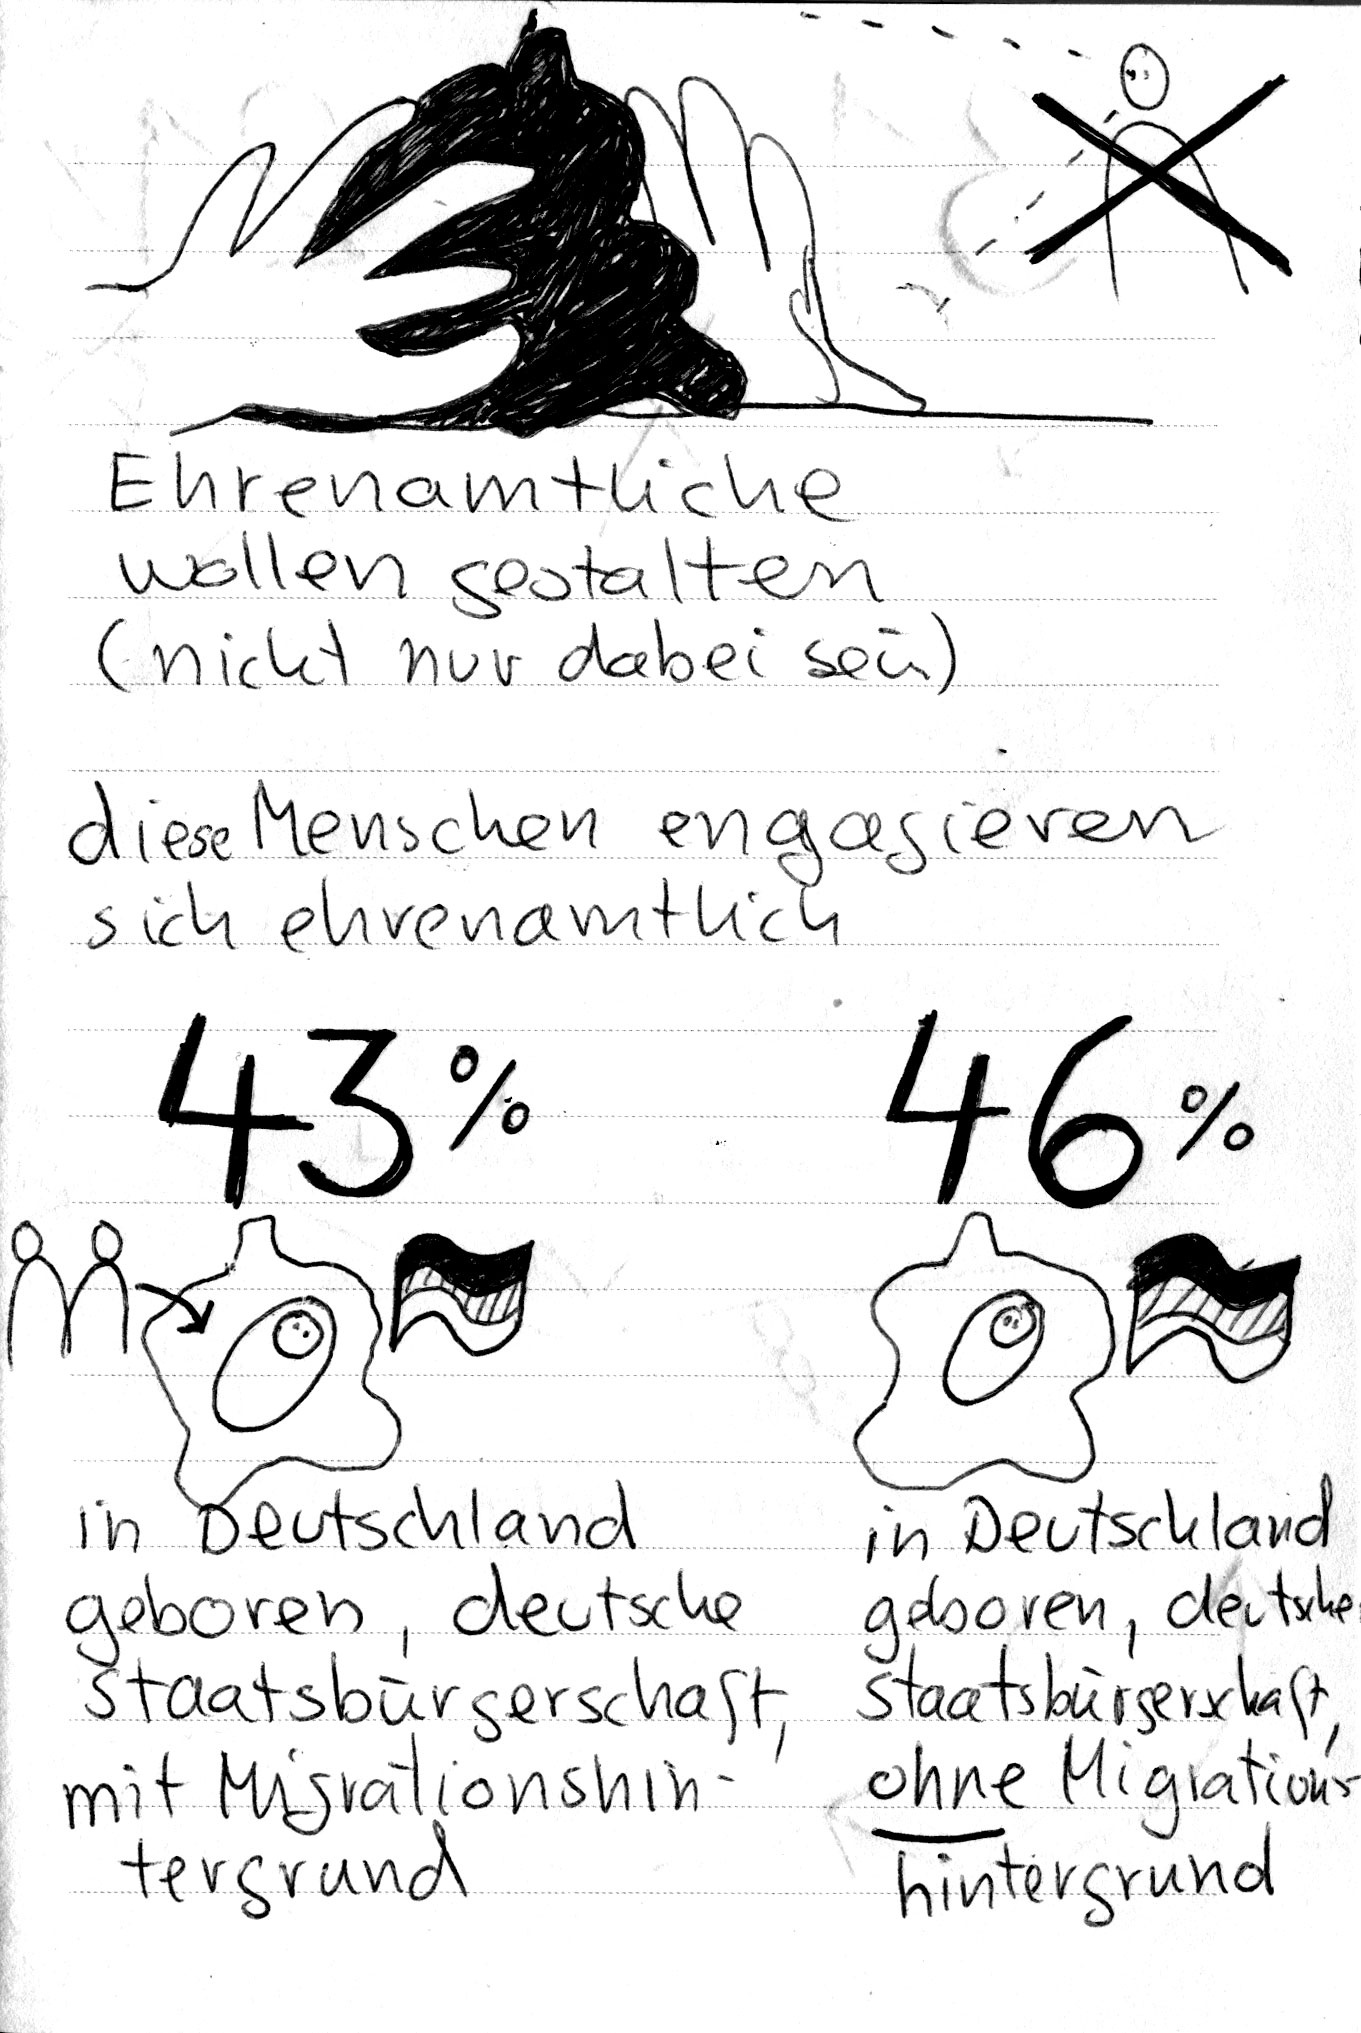 Ehrenamtliche
wollen gestalten
(nicht nur dabei sein)
diese Menschen engagieren
sich ehrenamtlich
43%
46%
in Deutschland
geboren, deutsche
Staatsbürgerschaft,
mit Migrationshin-
tergrund
in Deutschland
geboren, deutsche
Staatsbürgerschaft,
ohne Migrations
hintergrund